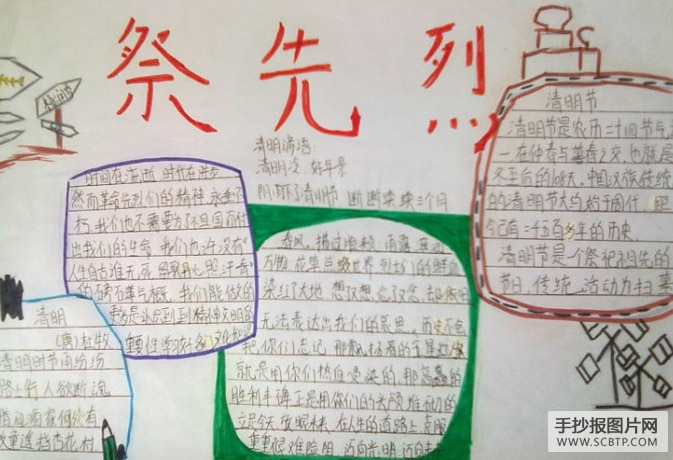 祭先烈
杨公
清明谚语:
清明冷,好年景
阴雨了清明节 断断续续三个月
时间在流逝,时代在进步
然而革命先烈们的精神,永垂不
朽,我们也不需要为了祖国而付
出我们的生命,我们也许没有"
人生自古谁无死,留取丹心照汗青
的 我们能做的
清明
(唐)杜牧
清明时节雨纷纷
路上行人欲断魂
借问酒家何处有
牧童遥指杏花村
春风,拂过
万物,花草 世界,烈士们的鲜血
染红了大地,想 想,念了又念,却
无法表达出我们的思思,历史不会
把你们忘记,那 的五星红旗
就是用你们热血浸染的,那高矗的
胜利丰碑正是用你们的 颅堆彻的
今天, 在人生的道路上,克服
重重艰难险阻,迈向光明,迈向
清明节
清明节是农历二十四节气
一,在仲春与暮春之交,也就是
冬至后的108天。中国汉族传统
的清明节大约始于周代,距
今已有二千五百多年的历史
清明节是一个祭祀祖先的
节日,传统活动为扫墓
手抄报图片网
WWW.SCBTP.COM